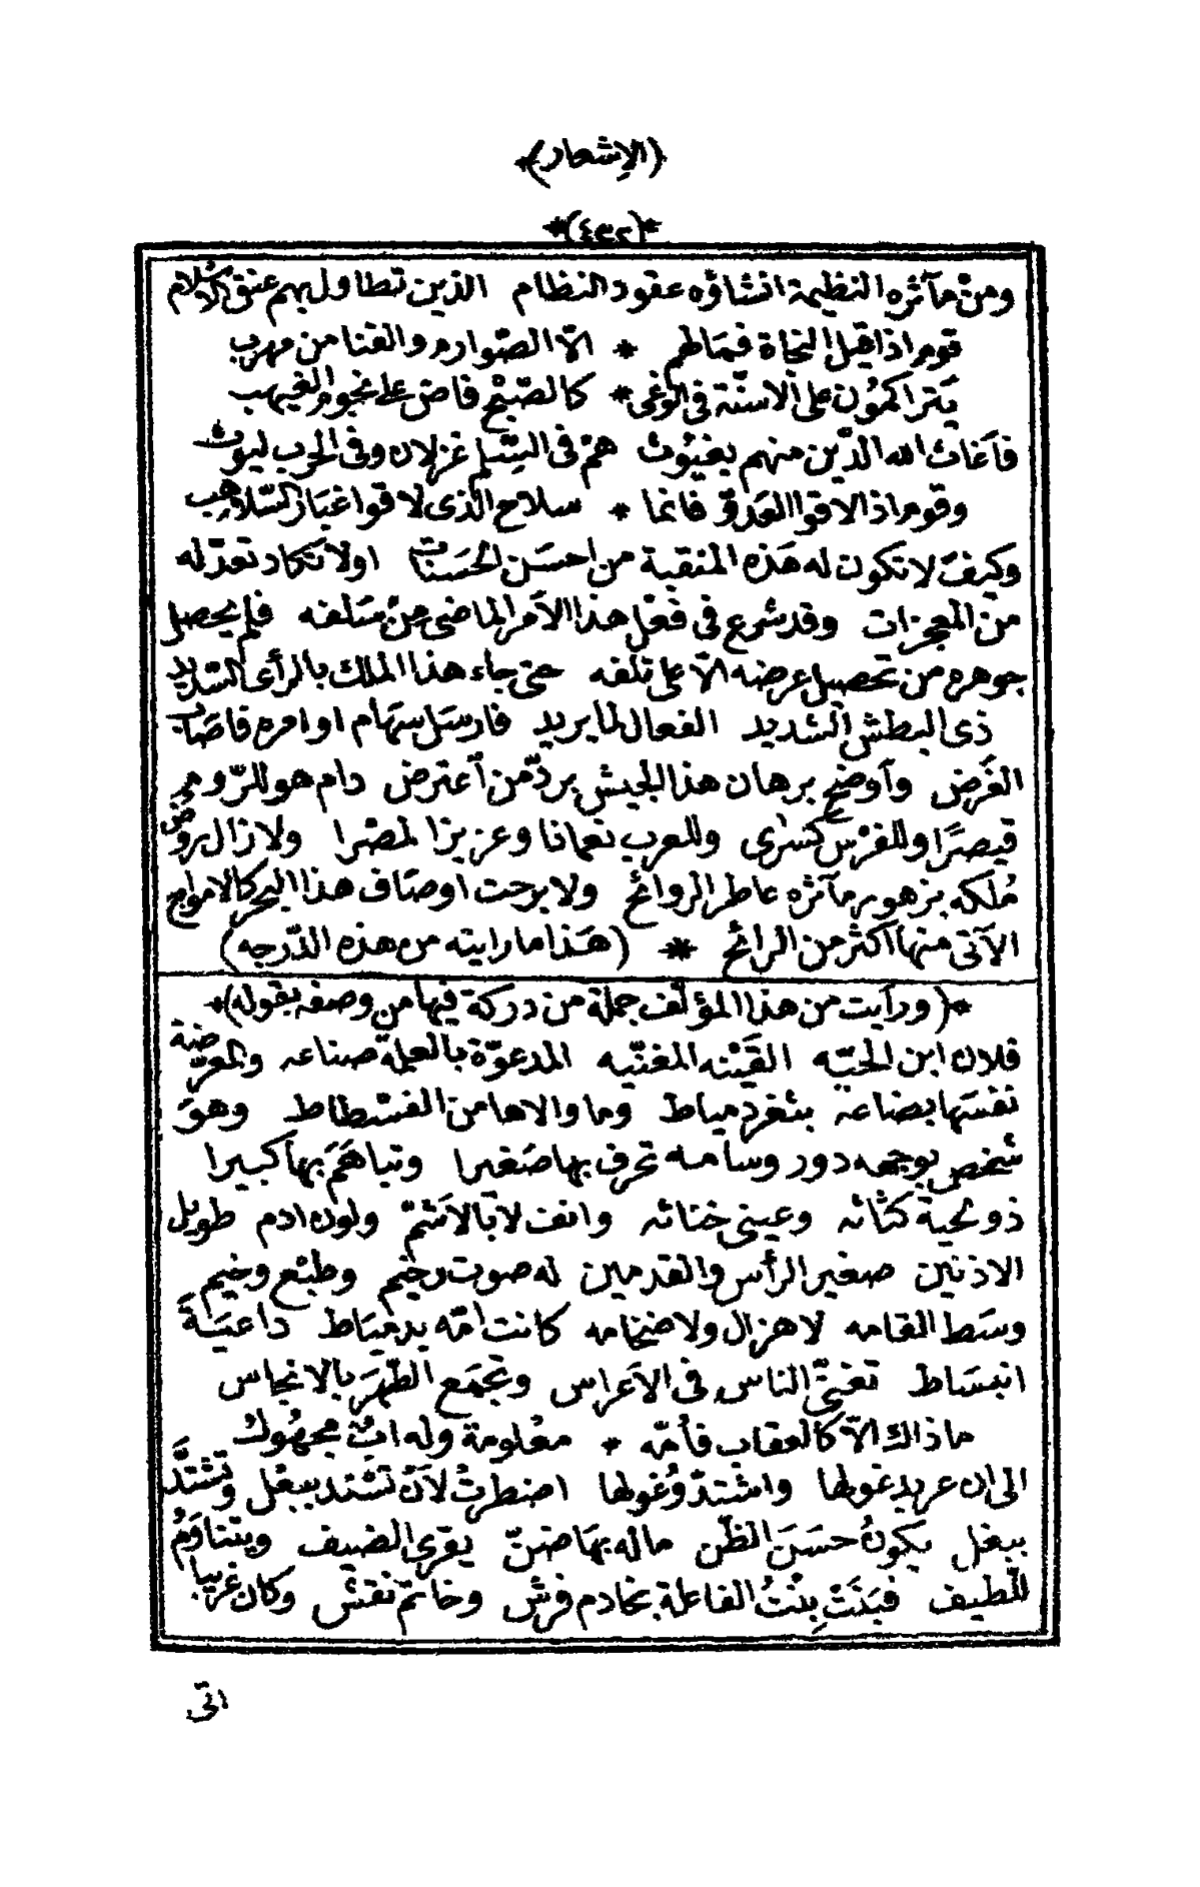 (الإشعار)*
*(٤٣٢)*
ومن مآثره النظيمة انشاؤه عقود النظام الذين تطاول بهم عنق الاسلام
قوم اذا قيل النجاة فما لهم * الّا الصّوارم والقنا من مهرب
يتراكمون على الاسنّة فى الوغى * كالصّبح فاض على نجوم الغيهب
فأغاث الله الدّين منهم بغيوث همْ فى السّلم غزلان وفى الحرب ليوث
وقوم اذا لاقوا العدوّ فانما * سلاح الذى لاقوا غبار السّلاهب
وكيفَ لا تكون له هَذه المنقبة من احسَن الحسَنات اولا تكاد تعدّ له
من المعجزات وقد شرع فى فعْل هذا الأمر الماضى منْ سَلفه فلم يحصل
جوهره من تحصيل عرضه الّا على تلفه حتى جاء هذا الملك بالرأى السّديد
ذى البطش الشديد الفعال لما يريد فارسَل سهام اوامره فاصَاب
الغَرض وأوضح برهان هذا الجيش بردّ من أعترض دام هو للرّوم
قيصرًا وللفرْس كسْرى وللعرب نعمانا وعزيزا لمصْرا ولا زال روض
مُلكه بزهور مآثره عاطر الروائح ولا برحت اوصَاف هذا البحر كالامواج
الآتى منها اكثر من الرائح * (هَذا ما رايته من هذه الدّرجه)
*(ورأيت من هذا المؤلّف جملة من دركة فيها من وصفه بقوله)*
فلان ابن الحبّه القَيْنه المغنّيه المدعوّة بالعملة صناعه والمعرّضة
نفسَها بضاعه بثغر دمياط وما والاها من الفسْطاط وهوَ
شخص بوجهه دور وسامه تحرف بها صَغيرا وتباهَمَ بها كبيرا
ذو لحية كثّائه وعينى خنائه وانف لا بالاَشمّ ولون ادم طويل
الاذنين صغير الرأس والقدمين له صوت رخيم وطبْع وخيم
وسَط القامه لا هزال ولا ضخامه كانت امّه بدميَاط داعيَةَ
انبسَاط تغنّى الناس فى الأعراس وتجمَع الطّهرَ بالانجاس
ماذاك الّا كالعقاب فأمّه * معْلومة وله ابٌ مجهُولُ
الى ان عربد غولها واشتدّ وُغولها اضطرتْ لأنْ تشتد ببغل وتشتدَّ
ببغل يكونُ حسَنَ الظّن ماله بهَا ضنّ يقرى الضيف ويتناوَمُ
للطيف فبَنَتْ بِنْتُ الفاعلة بخادم فرش وخاتم نقش وكان غريبا
اتى